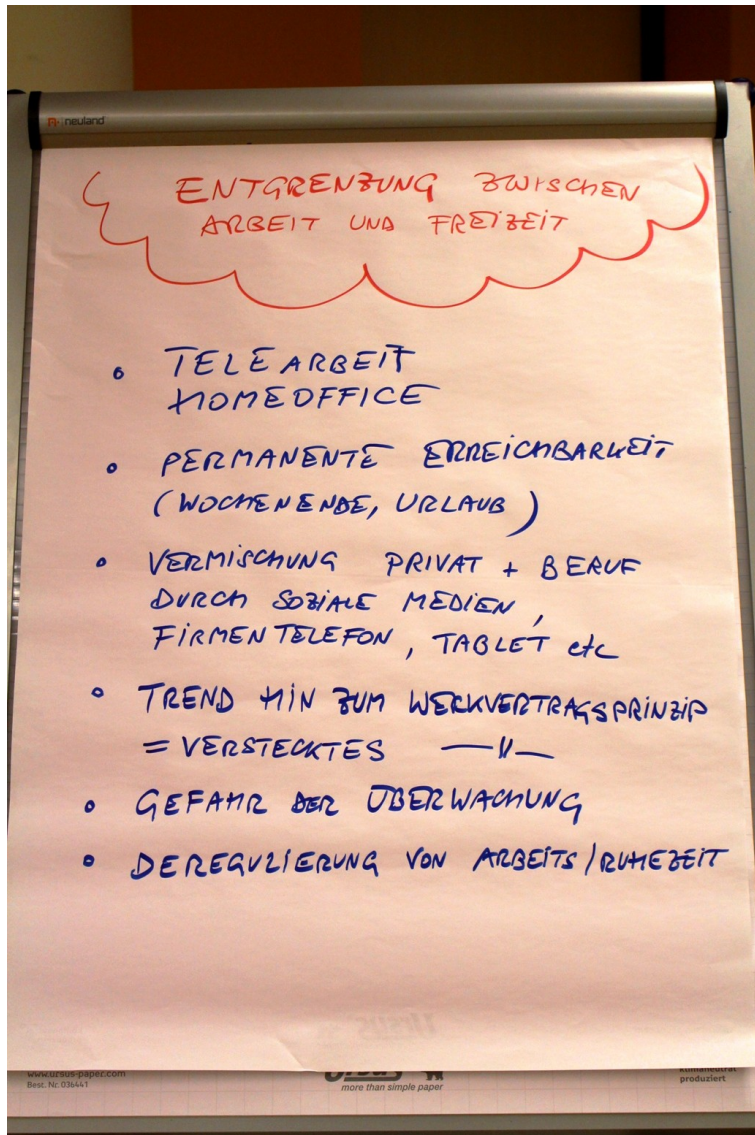 neuland
ENTGRENZUNG ZWISCHEN
ARBEIT UND FREIZEIT
• TELEARBEIT
HOMEOFFICE
• PERMANENTE ERREICHBARKEIT
(WOCHENENDE, URLAUB)
• VERMISCHUNG PRIVAT + BERUF
DURCH SOZIALE MEDIEN,
FIRMENTELEFON, TABLET etc
• TREND HIN ZUM WERKVERTRAGSPRINZIP
= VERSTECKTES —〃—
• GEFAHR DER ÜBERWACHUNG
• DEREGULIERUNG VON ARBEITS/RUHEZEIT
www.ursus-paper.com
Best. Nr. 036441
more than simple paper
klimaneutral
produziert